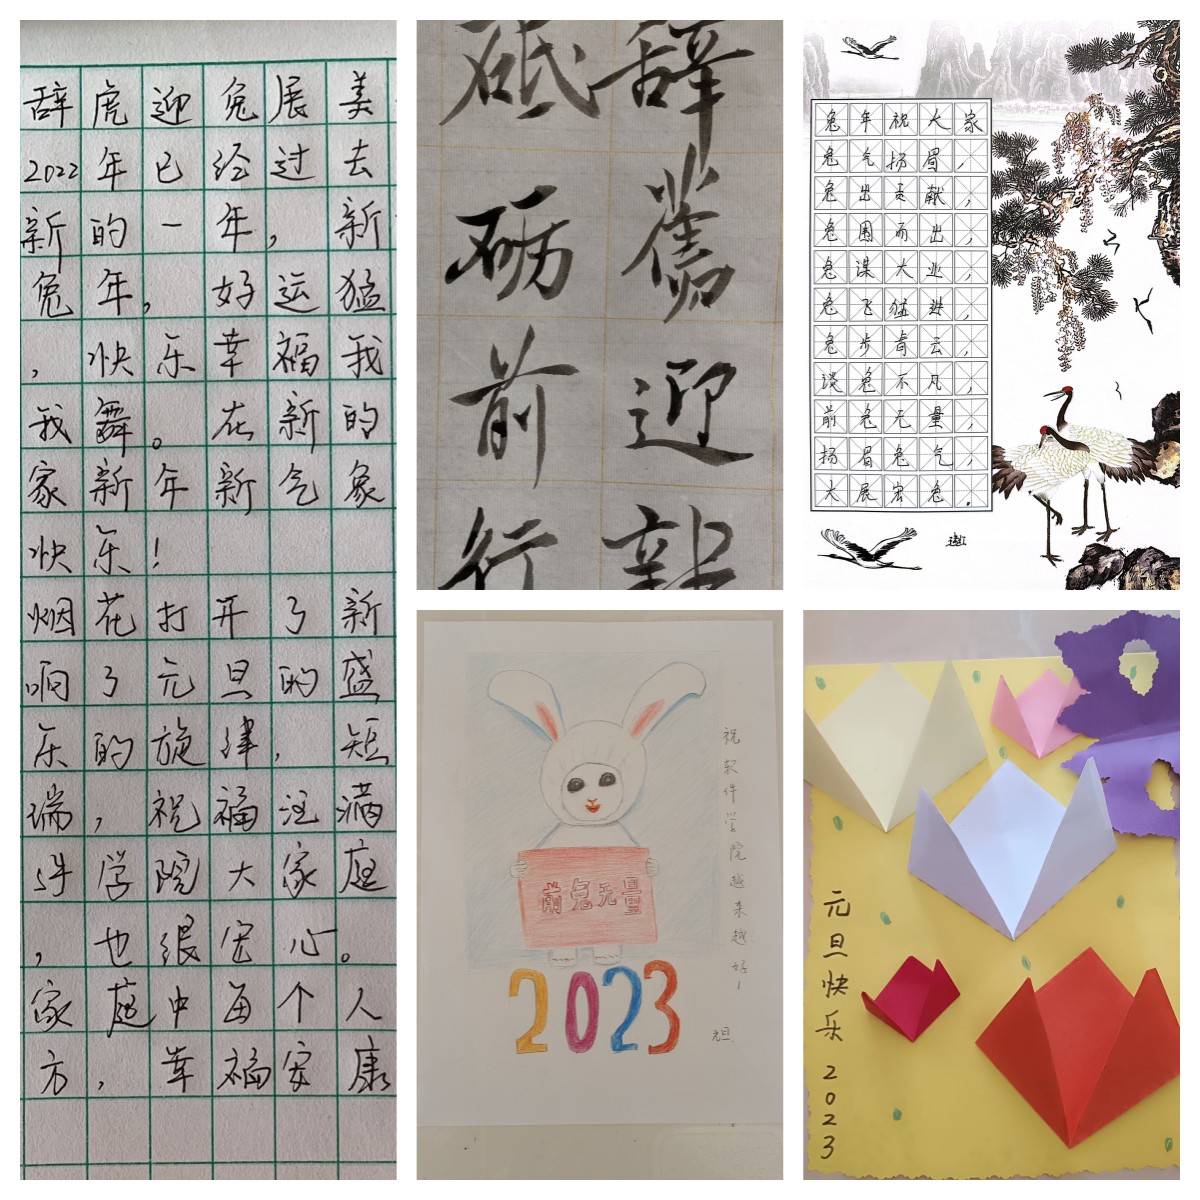 辞虎迎兔展美
2022年已经过去
新的一年，新
兔年，好运猛
，快乐幸福我
我舞。在新的
家新年新气象
快乐！
烟花打开了新
响了元旦的盛
乐的旋律，短
瑞，祝福注满
件学院大家庭
，也很宏心。
家庭中每个人
方，幸福安康
辞旧迎新
砥砺前行
兔年祝大家
兔气扬眉，
兔出贡献，
兔围而出，
兔谋大业，
兔飞猛进，
兔步青云，
谈兔不凡，
前兔无量，
扬眉兔气，
大展宏兔．
前兔无量
2023
祝软件学院越来越好！
元旦
元旦快乐 2023